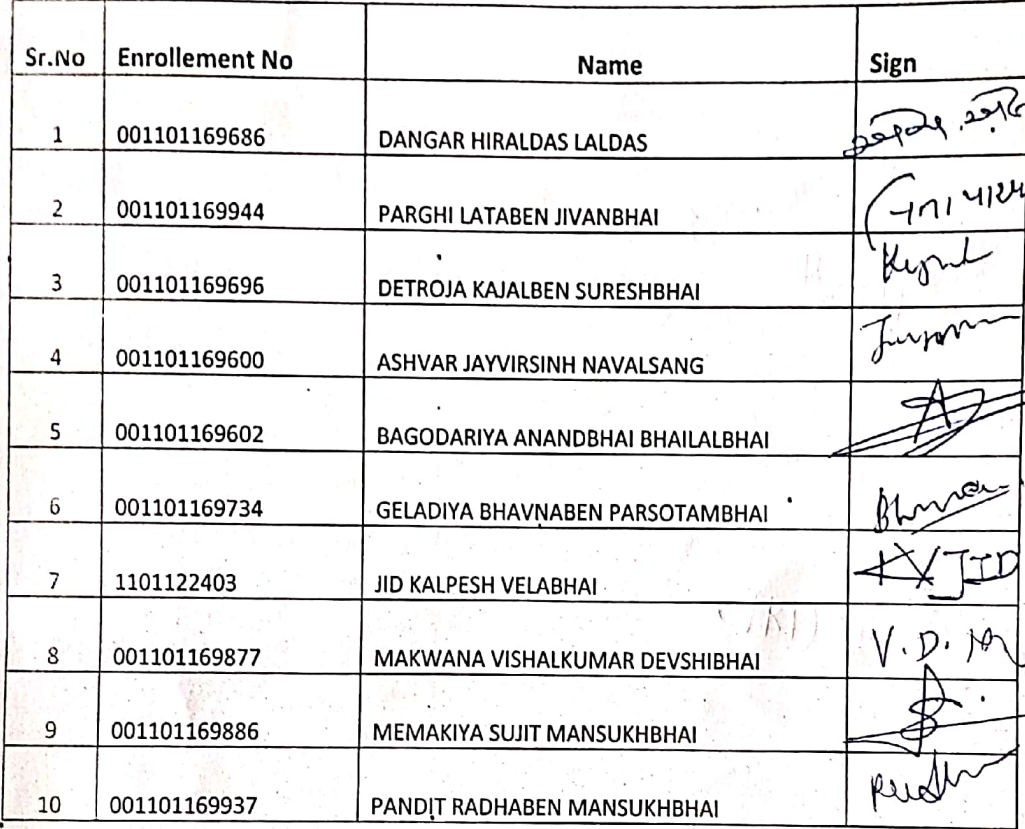 Sr.No Enrollement No Name Sign
1 001101169686 DANGAR HIRALDAS LALDAS
2 001101169944 PARGHI LATABEN JIVANBHAI
3 001101169696 DETROJA KAJALBEN SURESHBHAI
4 001101169600 ASHVAR JAYVIRSINH NAVALSANG
5 001101169602 BAGODARIYA ANANDBHAI BHAILALBHAI
6 001101169734 GELADIYA BHAVNABEN PARSOTAMBHAI
7 1101122403 JID KALPESH VELABHAI JID
8 001101169877 MAKWANA VISHALKUMAR DEVSHIBHAI V.D.M
9 001101169886 MEMAKIYA SUJIT MANSUKHBHAI
10 001101169937 PANDIT RADHABEN MANSUKHBHAI